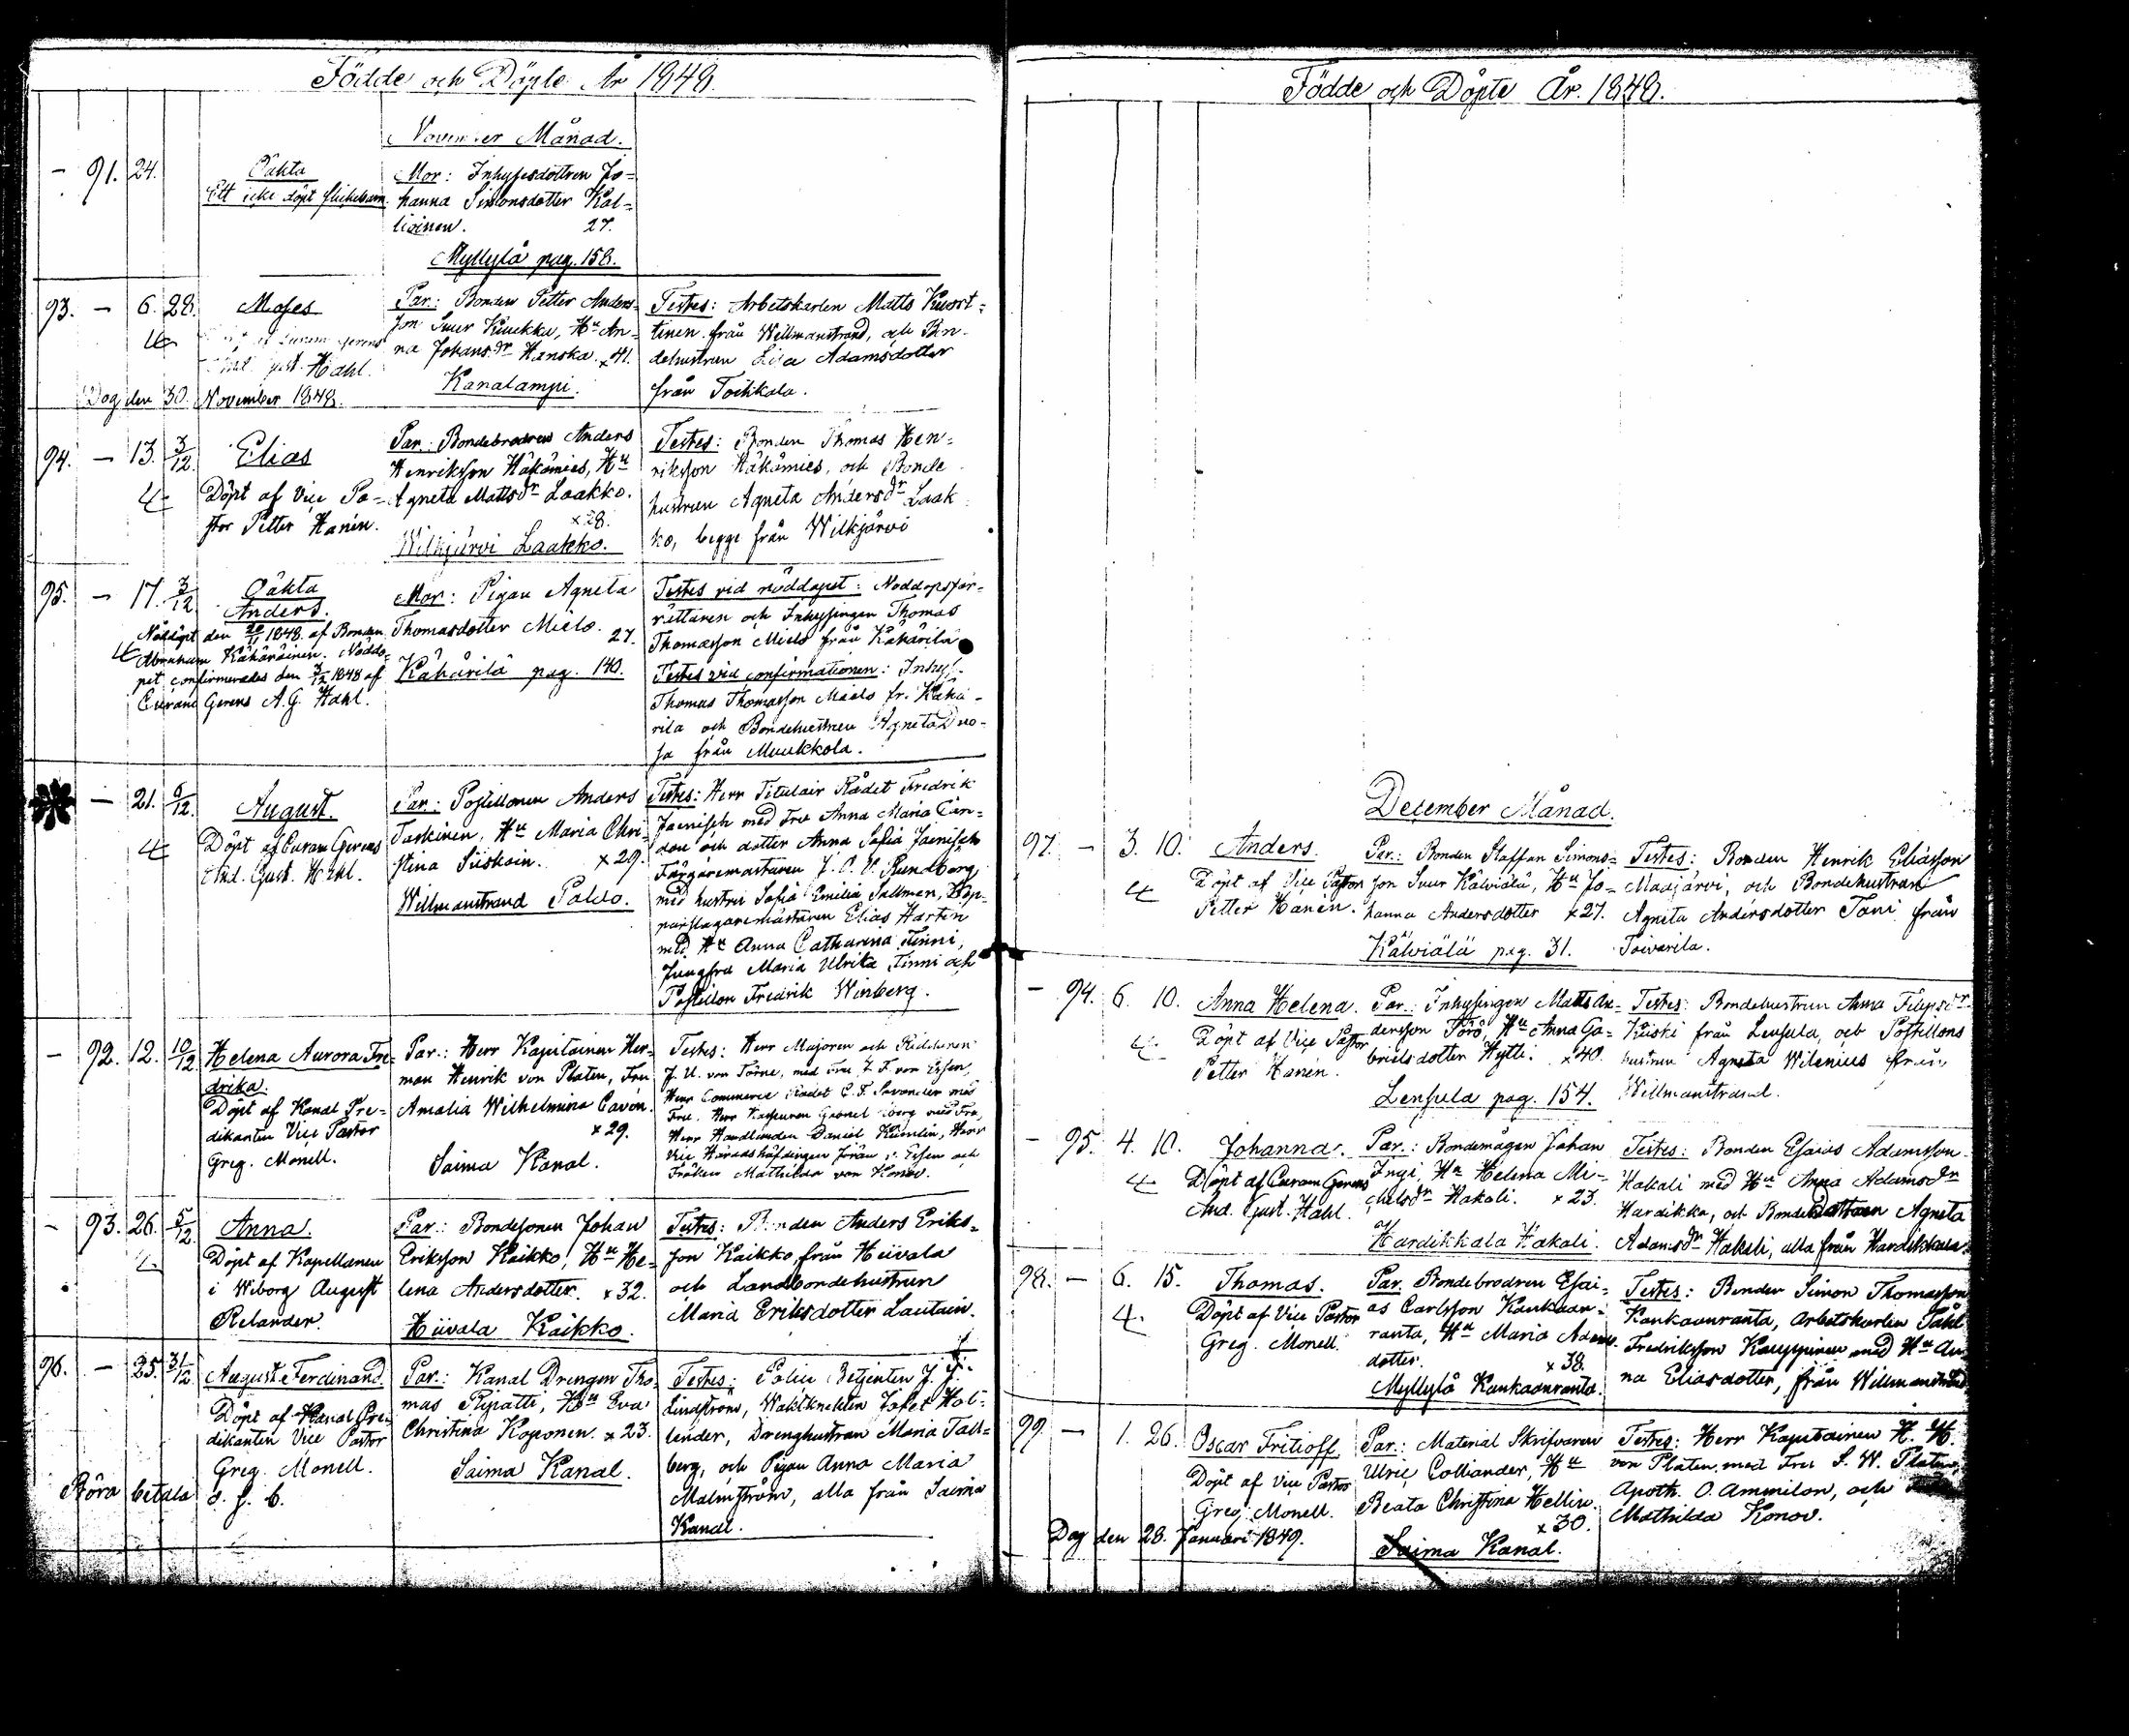 Födde och Döpte År 1848.
November Månad.
- 91. 24.
Oäkta
Ett icke döpt flickebarn.
Mor: Inhysesdottren Jo=
hanna Simonsdotter Kal=
lioinen. 27.
Myllylä pag. 158.
93. - 6. 28.
Moses
Hahl.
Dog den 30. November 1848.
Par: Bonden Petter Anders=
son Suur Kuukka, Hu An=
na Johansdr Hanska. x 41.
Kanalampi.
Testes: Arbetskarlen Matts Kuort=
tinen från Willmanstrand, och Bon-
dehustrun Lisa Adamsdotter
från Toikkala.
94. - 13. 3/12.
Elias
Döpt af Vice Pa=
stor Petter Hanén.
Par: Bondebrodren Anders
Henriksson Häkämies, Hu
Agneta Mattsdr Laakko.
x 28.
Wilkjärvi Laakko.
Testes: Bonden Thomas Hen=
riksson Häkämies, och Bonde
hustrun Agneta Andersdr Laak
ko, begge från Wilkjärvi
95. - 17. 3/12.
Oäkta
Anders.
Nöddöpt den 20/11 1848. af Bonden
Abraham Kähäräinen. Nöddo=
pet confirmerades den 3/12 1848 af
Curam Gerens A. G. Hahl.
Mor: Pigan Agneta
Thomasdotter Mielo.
27.
Kähärilä pag. 140.
Testes vid nöddopet: Nöddopsför-
rättaren och Inhysingen Thomas
Thomasson Mielo från Kähärilä
Testes vid confirmationen: Inhys:
Thomas Thomasson Mielo fr. Kähä-
rilä och Bondehustrun Agneta Duo-
sa från Muukkola.
- 21. 6/12.
August.
Döpt af Curam Gerens
And. Gust. Hahl.
Par: Postillonen Anders
Taskinen, Hu Maria Chri-
stina Siiskoin. x 29.
Willmanstrand Paldo.
Testes: Herr Titulair Rådet Fredrik
Jaenisch med Fru Anna Maria Can-
don och dotter Anna Sofia Jaenisch
Färgaremästaren J. O. V. Rundberg
med hustru Sofia Emilia Sallmen, Kop-
parslagaremästaren Elias Hartin
med Hu Anna Catharina Finni,
Jungfru Maria Ulrika Finni och
Postillon Fredrik Winberg.
- 92. 12. 10/12
Helena Aurora Fre=
drika.
Döpt af Kanal Pre-
dikanten Vice Pastor
Greg. Monell.
Par: Herr Kapitainen Her-
man Henrik von Platen, Fru
Amalia Wilhelmina Cavén.
x 29.
Saima Kanal.
Testes: Herr Majoren och Riddaren
J. U. von Törne, med Fru J. F. von Essen,
Herr Commerce Rådet C. F. Savander med
Fru, Herr Gabriel med Fru,
Herr Handlanden Daniel Kumlin, Herr
Vice Häradshöfdingen Jöran v. Essen och
Fröken Mathilda von Konov.
- 93. 26. 5/12.
Anna.
Döpt af Kapellanen
i Wiborg August
Relander.
Par: Bondesonen Johan
Eriksson Kaikko, Hu He-
lena Andersdotter. x 32.
Hiivala Kaikko.
Testes: Bonden Anders Eriks=
son Kaikko, från Hiivala
och Landbondehustrun
Maria Eriksdotter Lautain.
96. - 25. 31/12.
August Ferdinand.
Döpt af Kanal Pre-
dikanten Vice Pastor
Greg. Monell.
Böra betala d. f. b.
Par: Kanal Drengen Tho-
mas Ripatti, Hu Eva
Christina Koponen. x 23.
Saima Kanal.
Testes: Police Betjenten J. J.
Lindström, Waktknekten Jakob Hol-
lender, Drenghustrun Maria Tall=
berg, och Pigan Anna Maria
Malmström, alla från Saima
Kanal.
Födde och Döpte År. 1848.
December Månad.
97. - 3. 10.
Anders.
Döpt af Vice Pastor
Petter Hanén.
Par: Bonden Staffan Simons=
son Suur Kälviälä, Hu Jo=
hanna Andersdotter x 27.
Kälviälä pag. 31.
Testes: Bonden Henrik Eliasson
Maajärvi, och Bondehustrun
Agneta Andersdotter Toni från
Toivarila.
- 94. 6. 10.
Anna Helena.
Döpt af Vice Pastor
Petter Hanén.
Par: Inhysingen Matts An-
dersson Törö, Hu Anna Ga=
brielsdotter Hytti. x 40.
Lensula pag. 154.
Testes: Bondehustrun Anna Filipsdr
Kuiski från Lensula, och Postillons
hustrun Agneta Wilenius från
Willmanstrand.
- 95. 4. 10.
Johanna.
Döpt af Curam Gerens
And. Gust. Hahl.
Par: Bondemågen Johan
Ingi, Hu Helena Mi-
chelsdr Hakali. x 23.
Hardikkala Hakali.
Testes: Bonden Esaias Adamsson
Hakali med Hu Anna Adamsdr
Hardikka, och Bondedottren Agneta
Adamsdr Hakali, alla från Hardikkala.
98. - 6. 15.
Thomas.
Döpt af Vice Pastor
Greg. Monell.
Par. Bondebrodren Esai=
as Carlsson Kaukaan=
ranta, Hu Maria Adams
dotter. x 38.
Myllylä Kaukaanranta.
Testes: Bonden Simon Thomasson
Kaukaanranta, Arbetskarlen Påhl
Fredriksson Kauppinen med Hu An
na Eliasdotter, från Willmanstrand
99. - 1. 26.
Oscar Fritioff
Döpt af Vice Pastor
Greg. Monell.
Dog den 28. Januari 1849.
Par: Material Skrifvaren
Ulric Colliander, Hu
Beata Christina Hellin.
x 30.
Saima Kanal.
Testes: Herr Kapitainen H. H.
von Platen, med Fru S. W. Platen,
Apoth. O. Ammilon, och
Mathilda Konov.